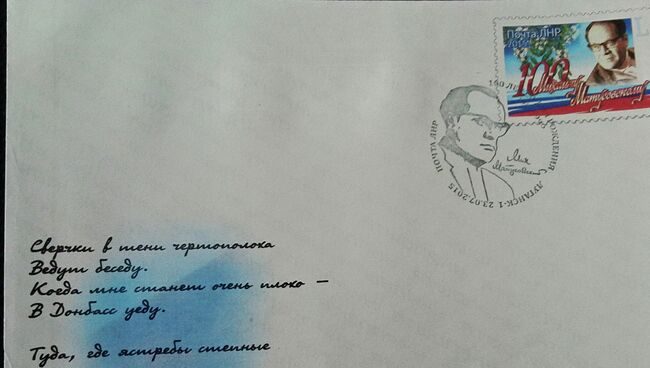 Почта ЛНР
100
Михаилу
Матусовскому
ПОЧТА ЛНР
РОЖДЕНИЯ
ЛУГАНСК-1 23.07.2015
Сверчки в тени чертополоха
Ведут беседу.
Когда мне станет очень плохо –
В Донбасс уеду.
Туда, где ястребы степные